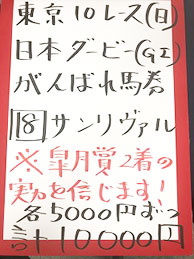 東京10レース(日)
日本ダービー(GI)
がんばれ馬券
18 サンリヴァル
※皐月賞2着の
実力を信じます!
各5000円ずつ
計10000円